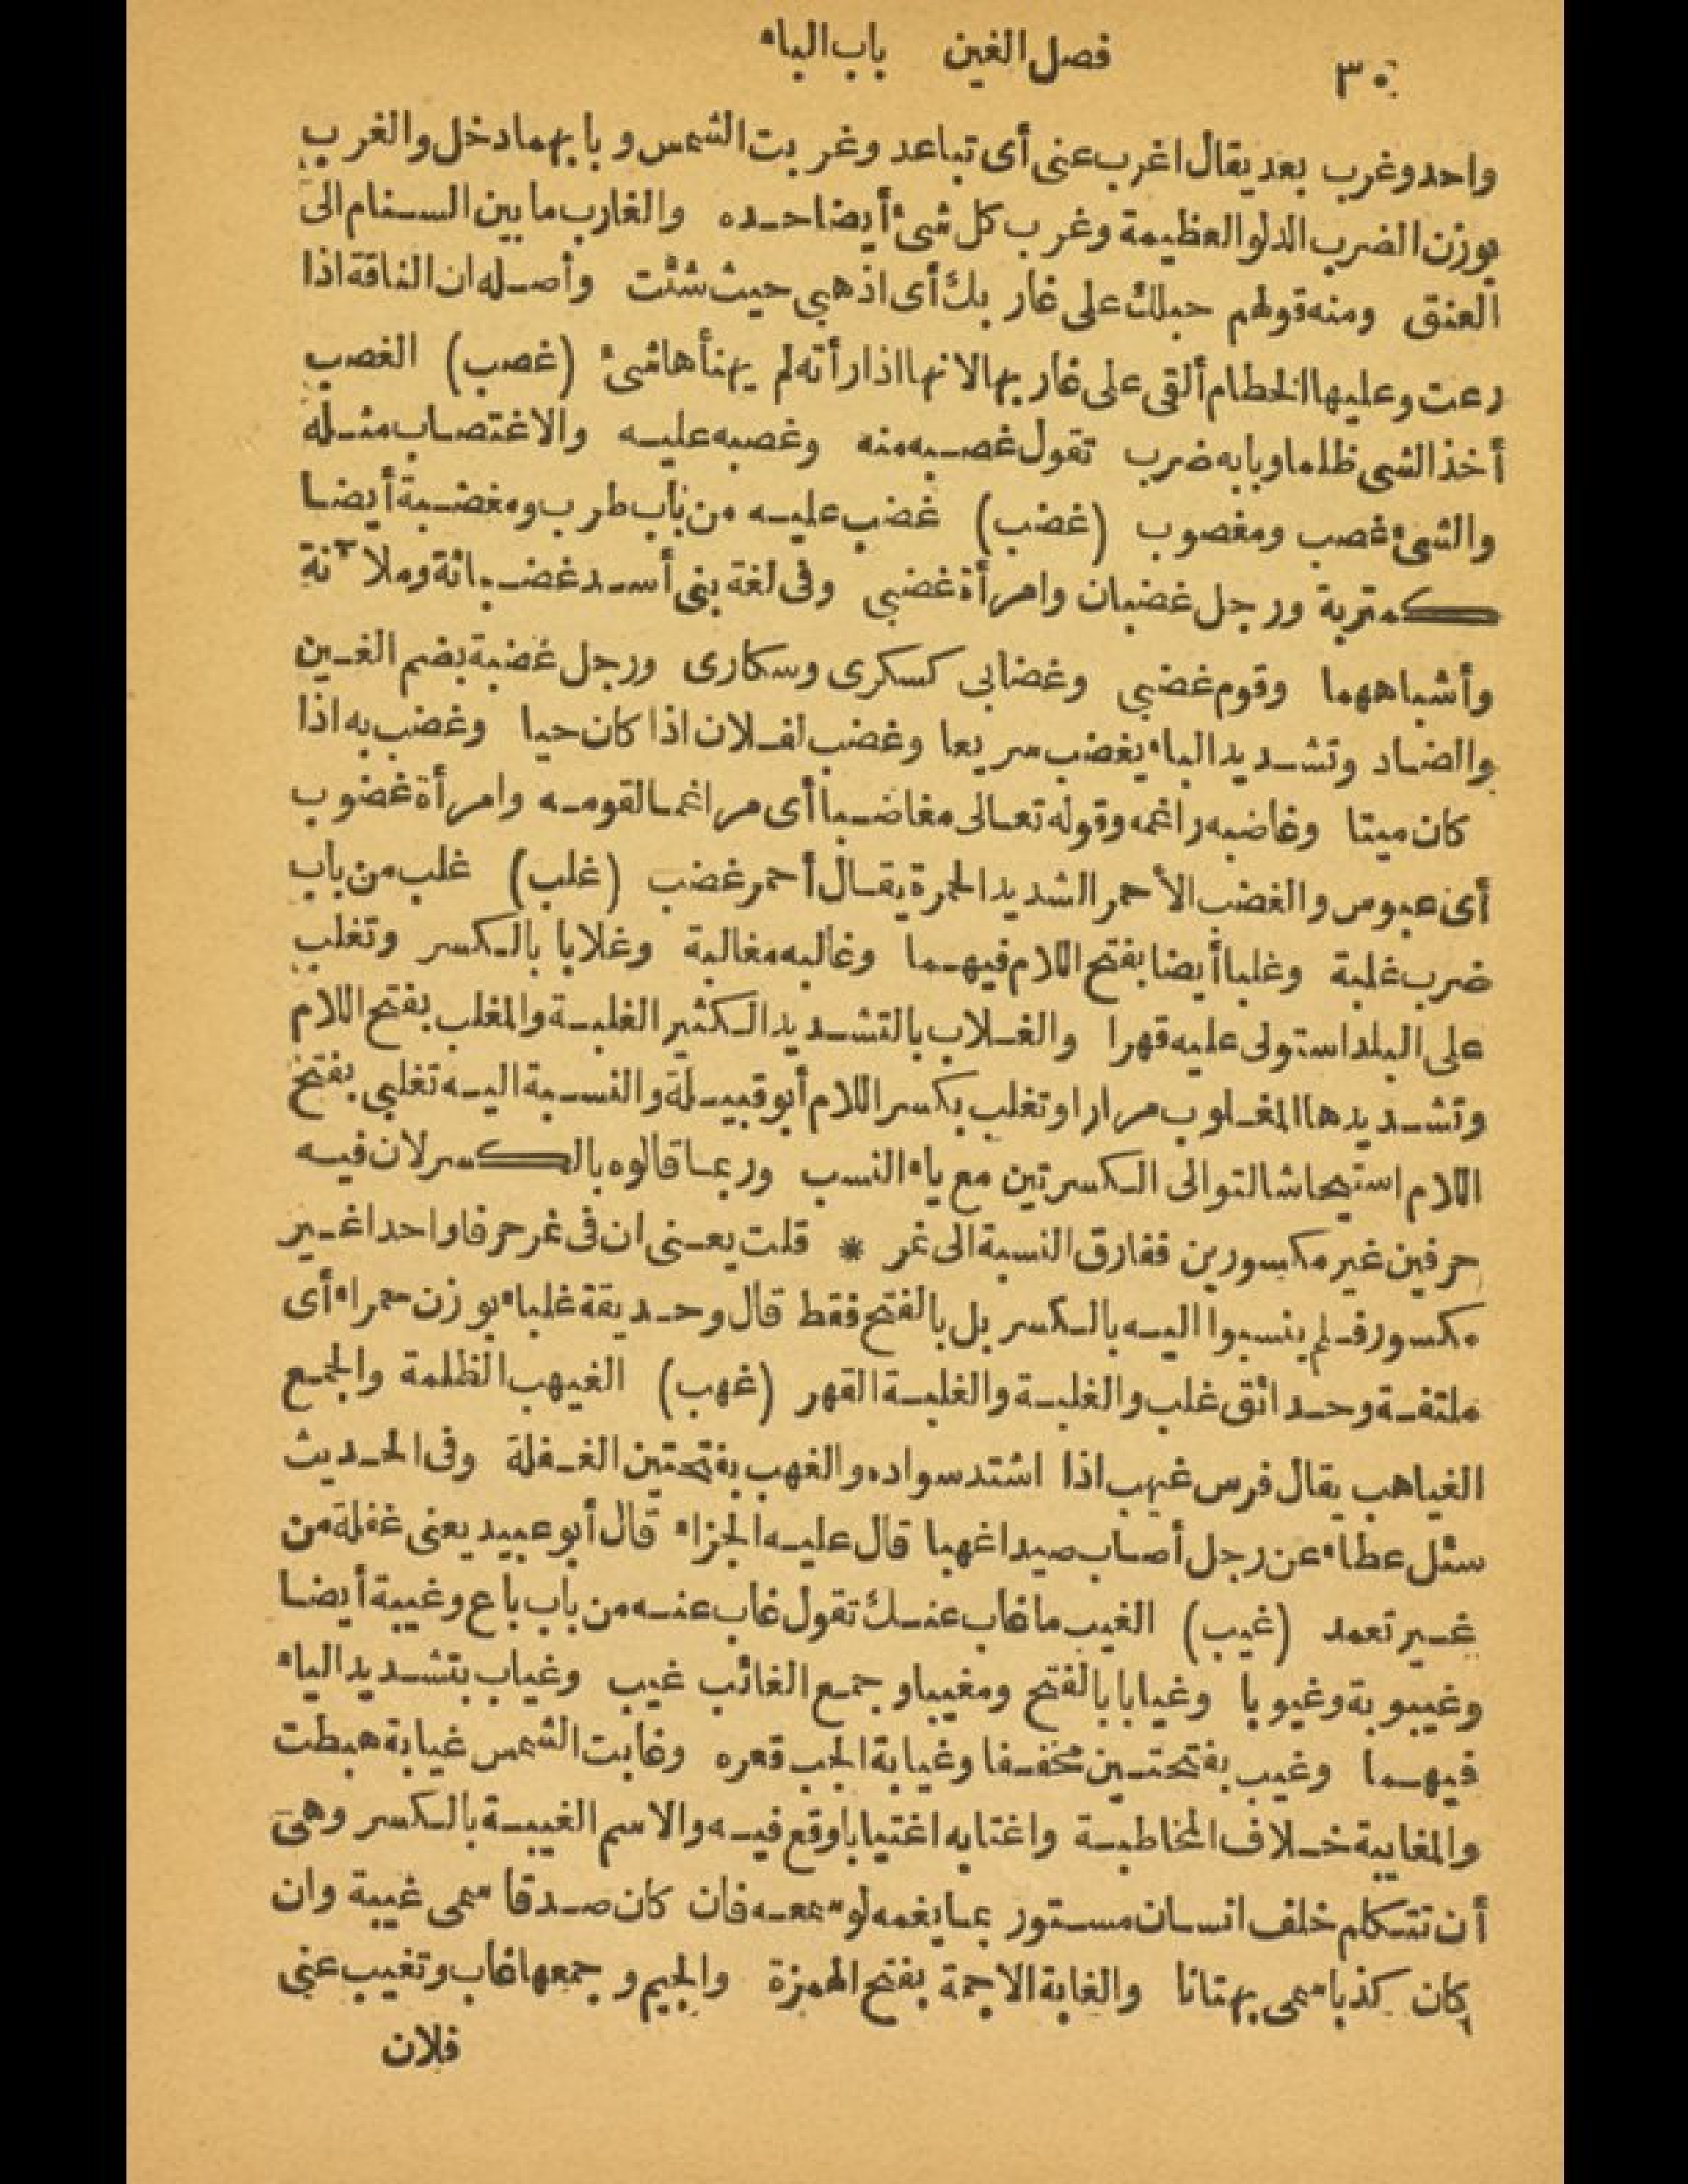 ٣٠ فصل الغين باب الباء
واحد وغرب بعد يقال اغرب عنى أى تباعد وغربت الشمس وبابهما دخل والغرب
بوزن الضرب الدلو العظيمة وغرب كل شئ أيضا حده والغارب ما بين السنام الى
العنق ومنه قولهم حبلك على غاربك أى اذهبى حيث شئت وأصله ان الناقة اذا
رعت وعليها الخطام ألقى على غاربها لانها اذا رأته لم يهنأها شئ (غصب) الغصب
أخذ الشى ظلما وبابه ضرب تقول غصبه منه وغصبه عليه والاغتصاب مثله
والشئ غصب ومغصوب (غضب) غضب عليه من باب طرب ومغضبة أيضا
كمتربة ورجل غضبان وامرأة غضبى وفى لغة بنى أسد غضبانة وملآنة
وأشباههما وقوم غضبى وغضابى كسكرى وسكارى ورجل غضبة بضم الغين
والضاد وتشديد الباء يغضب سريعا وغضب لفلان اذا كان حيا وغضب به اذا
كان ميتا وغاضبه راغمه وقوله تعالى مغاضبا أى مراغما لقومه وامرأة غضوب
أى عبوس والغضب الأحمر الشديد الحمرة يقال أحمر غضب (غلب) غلب من باب
ضرب غلبة وغلبا أيضا بفتح اللام فيهما وغالبه مغالبة وغلابا بالكسر وتغلب
على البلد استولى عليه قهرا والغلاب بالتشديد الكثير الغلبة والمغلب بفتح اللام
وتشديدها المغلوب مرارا وتغلب بكسر اللام أبو قبيلة والنسبة اليه تغلبى بفتح
اللام استيحاشا لتوالى الكسرتين مع ياء النسب وربما قالوه بالكسر لان فيه
حرفين غير مكسورين ففارق النسبة الى غر * قلت يعنى ان فى غر حرفا واحدا غير
مكسور فلم ينسبوا اليه بالكسر بل بالفتح فقط قال وحديقة غلباء بوزن حمراء أى
ملتفة وحدائق غلب والغلبة والغلبة القهر (غهب) الغيهب الظلمة والجمع
الغياهب يقال فرس غيهب اذا اشتد سواده والغهب بفتحتين الغفلة وفى الحديث
سئل عطاء عن رجل أصاب صيدا غهبا قال عليه الجزاء قال أبو عبيد يعنى غفلة من
غير تعمد (غيب) الغيب ما غاب عنك تقول غاب عنه من باب باع وغيبة أيضا
وغيبوبة وغيوبا وغيابا بالفتح ومغيبا وجمع الغائب غيب وغياب بتشديد الياء
فيهما وغيب بفتحتين مخففا وغيابة الجب قعره وغابت الشمس غيابة هبطت
والمغايبة خلاف المخاطبة واغتابه اغتيابا وقع فيه والاسم الغيبة بالكسر وهى
أن تتكلم خلف انسان مستور بما يغمه لو سمعه فان كان صدقا سمى غيبة وان
كان كذبا سمى بهتانا والغابة الاجمة بفتح الهمزة والجيم وجمعها غاب وتغيب عنى
فلان